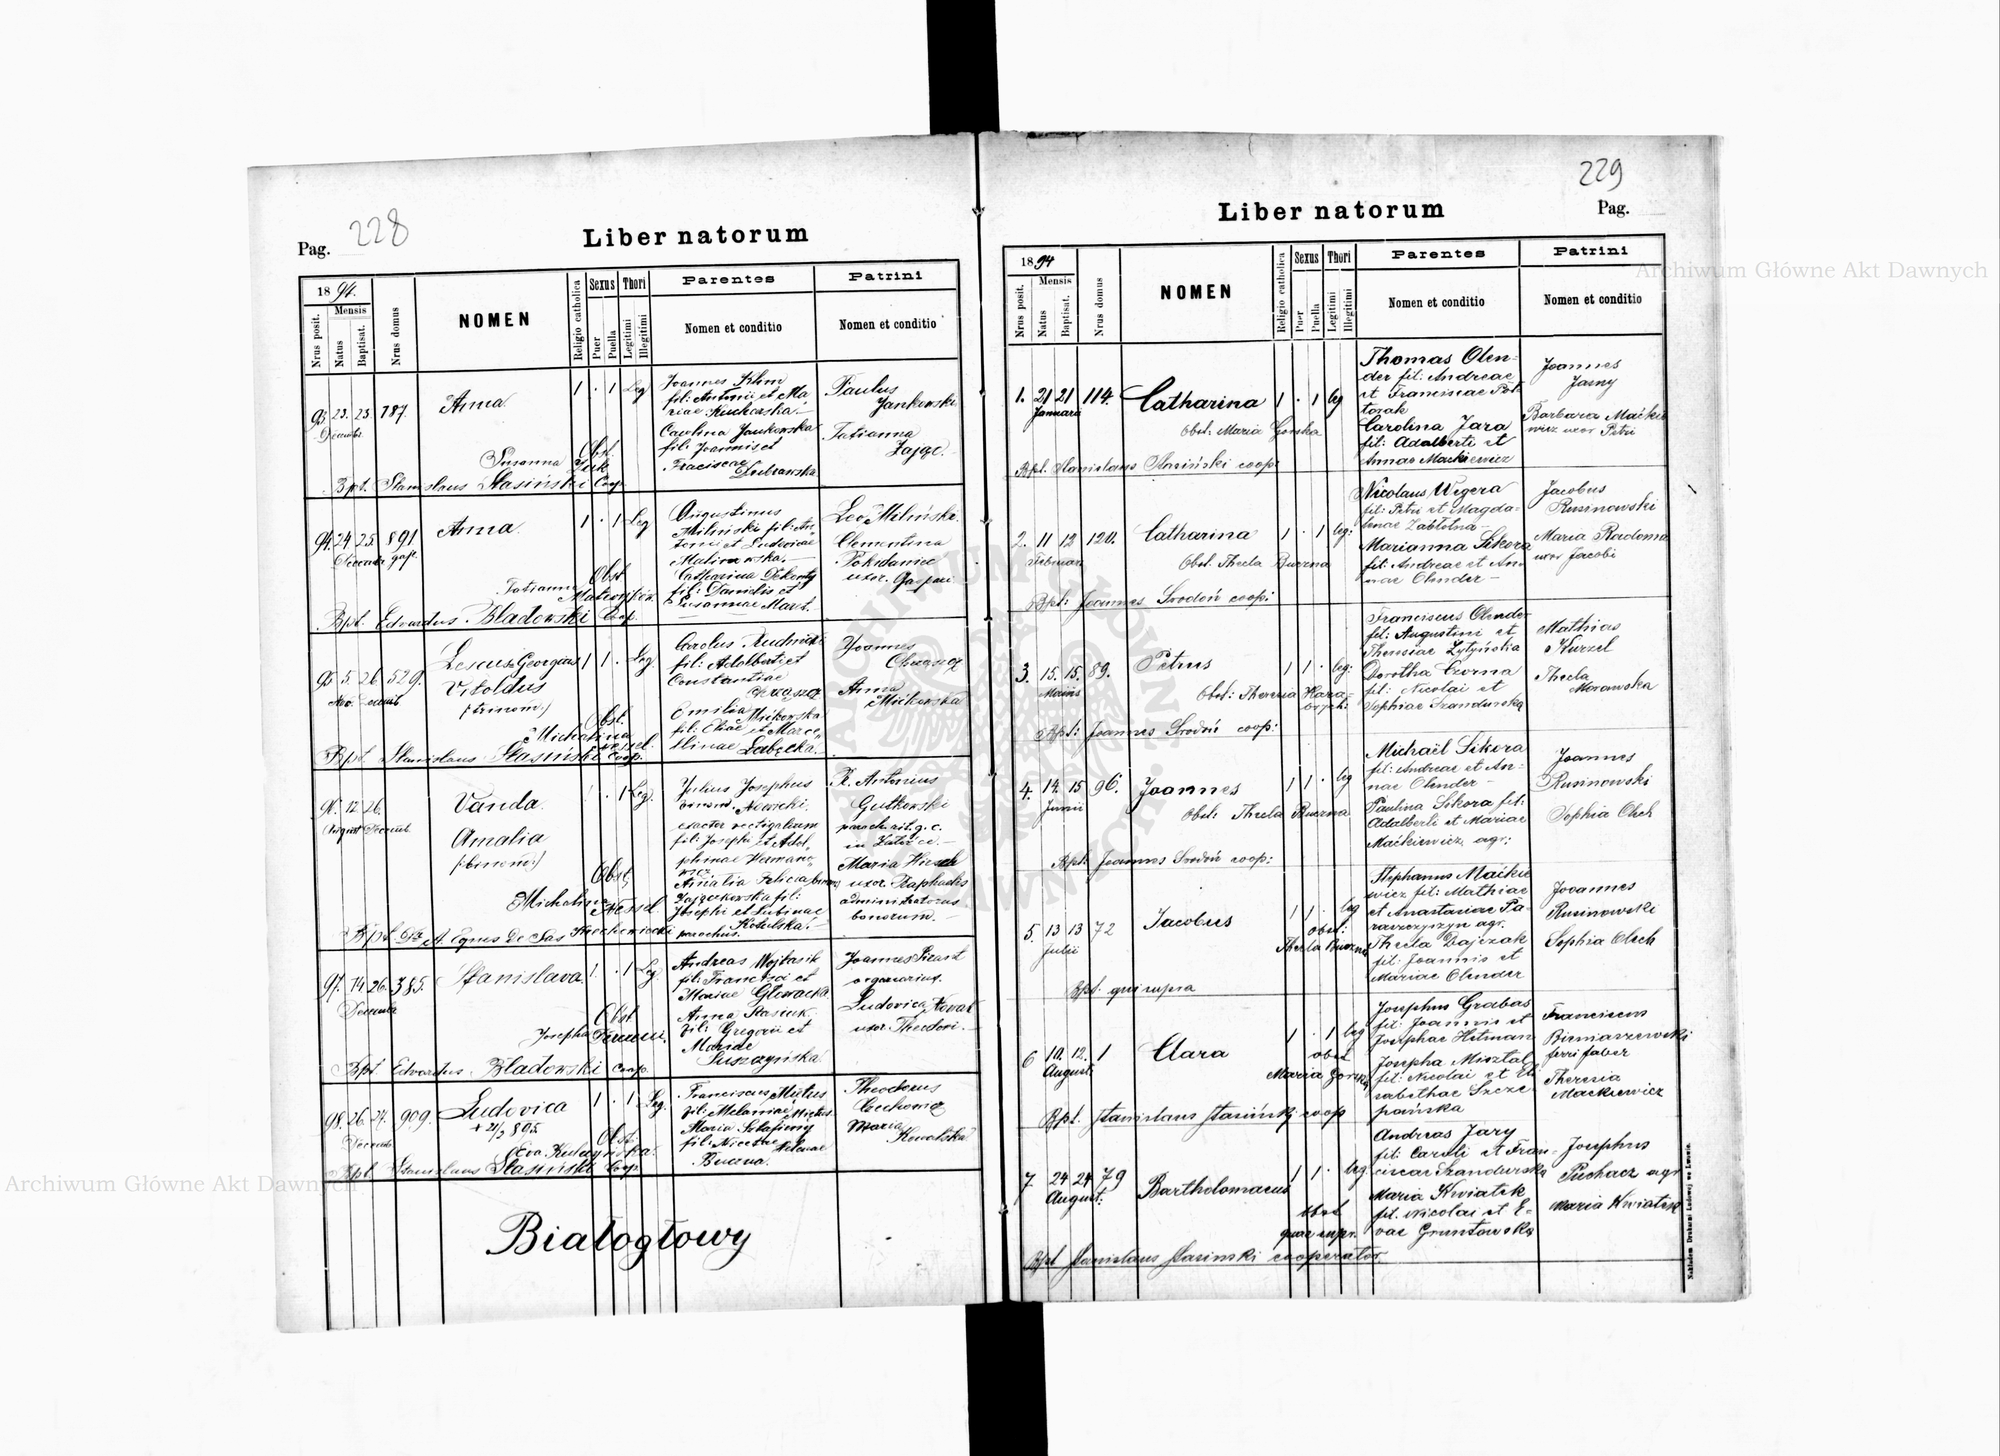 228
Pag.
Liber natorum
18 94.
Mensis
Nrus posit.
Natus
Baptisat.
Nrus domus
NOMEN
Religio catholica
Sexus
Puer
Puella
Thori
Legitimi
Illegitimi
Parentes
Nomen et conditio
Patrini
Nomen et conditio
93 23. 23. 787.
Anna
1 . 1 Leg
Joannes Klim
fil: Antonii et Ma-
riae Kucharska.—
Carolina Jankowska
fil: Joannis et
Franciscae
Paulus
Jankowski
Tatianna
Zając.
Susanna
Obst.
Bpt. Stanislaus Stasiński Coop.
94. 24 25. 891
Anna.
1 . 1 Leg
Augustinus
Miliński fil: An-
tonii et Ludovicae
Malinowska.—
Catharina
fil: Danielis et
Susannae
Leo Miliński.
Clementina
uxor. Gaspari
Tatianna
Obst
Bpt. Edvardus Bladowski Coop.
95 5. 26. 529.
Lescus Georgius
Vitoldus
(trinom.)
1 1 . Leg
Carolus Rudnicki
fil: Adalberti et
Constantiae
Emilia Mićkowska
fil: Eliae et Marce-
llinae
Joannes
Anna
Mićkowska
Obst.
Michalina
Bpt. Stanislaus Stasiński Coop.
96. 12. 26.
August Decemb.
Vanda.
Amalia
(binom:)
. 1 Leg.
Julius Josephus
binom. Nowicki
exactor vectigalium
fil: Josephi et Adol-
phinae
Amalia Felicia binom
fil:
Josephi et Sabinae
Antonius
Gutkowski
paroch. rit. g. c.
in
Maria
uxor. Raphaelis
administratoris
bonorum.—
Obst.
Michalina Nessel.
Bpt. Dr A. Eques De Sas
parochus.
97. 14 26. 385.
Decembr
Stanislava.
1. . 1 Leg.
Andreas Wojtasik
fil: Francisci et
Mariae Głowacka.
Anna Stasiuk
fil: Gregorii et
Mariae
Suszczyńska.
Joannes Picast
organarius.
Ludovica
uxor Theodori.—
Obst
Josepha
Bpt Edvardus Bladowski Coop.
98. 26. 27. 909.
Ludovica
1 . 1 Leg.
Franciscus
fil: Melaniae
Maria
fil: Nicetae
Theodorus
Maria
Kowalska
Obst:
Eva
Bpt. Stanislaus Stasiński Coop
Białogłowy
229
Liber natorum
Pag.
18 94
Mensis
Nrus posit.
Natus
Baptisat.
Nrus domus
NOMEN
Religio catholica
Sexus
Puer
Puella
Thori
Legitimi
Illegitimi
Parentes
Nomen et conditio
Patrini
Nomen et conditio
1. 21 21 114.
Januarii
Catharina
1 . 1 leg
Thomas Olen-
der fil: Andreae
et Franciscae Pół-
torak
Carolina Jara
fil: Adalberti et
Annae Mackiewicz
Joannes
Jasny
Barbara Maćkie-
wicz uxor Petri
Obst: Maria Gorska
Bpt. Stanislaus Stasiński coop:
2. 11 12 120.
Februar
Catharina
1 . 1 leg:
Nicolaus Wegera
fil: Petri et Magda-
lenae Zabłotna—
Marianna Sikora
fil: Andreae et An-
nae Olender—
Jacobus
Rusinowski
Maria Radoma
uxor Jacobi
Obst. Thecla Buczna
Bpt: Joannes Srodoń coop:
3. 15. 15. 89.
Maius
Petrus
1 1 . leg:
Franciscus Olender
fil: Augustini et
Theresiae Zytyńska
Dorothea Czorna
fil: Nicolai et
Sophiae Szandurska
Mathias
Kurzel
Thecla
Morawska
Obst: Theresia
Bpt: Joannes Srodoń coop:
4. 14. 15 96.
Junii
Joannes
1 1 . leg
Michaël Sikora
fil: Andreae et An-
nae Olender—
Paulina Sikora fil:
Adalberti et Mariae
Maćkiewicz agr:
Joannes
Rusinowski
Sophia Olech
Obst: Thecla Buczna
Bpt: Joannes Srodoń coop:
5. 13 13 72
Julii
Jacobus
1 1 . leg
Stephanus Maćkie-
wicz fil: Mathiae
et Anastasiae Pa-
raszczyszyn agr.
Thecla Dajczak
fil: Joannis et
Mariae Olender
Joannes
Rusinowski
Sophia Olech
obst:
Thecla Buczna
Bpt. qui supra
6 10. 12. 1
August.
Clara
1 . 1 leg
Josephus Grabas
fil: Joannis et
Josephae Hetman
Josepha Misztal
fil: Nicolai et Eli-
sabethae Szcze-
pańska
Franciscus
Bieniaszewski
ferri faber
Theresia
Mackiewicz
obst
Maria Gorska
Bpt. Stanislaus Stasiński coop
7. 24 24 79
August:
Bartholomaeus
1 1 . leg:
Andreas Jary
fil: Caroli et Fran-
ciscae Szandurska
Maria Kwiatek
fil: Nicolai et E-
vae Gruntowska
Josephus
Puchacz agr
Maria Kwiatek
obst
quae supr.
Bpt Stanislaus Stasinski cooperator.
Nakładem Drukarni Ludowej we Lwowie.
Archiwum Główne Akt Dawnych
Archiwum Główne Akt Dawnych
ARCHIWUM GŁÓWNE